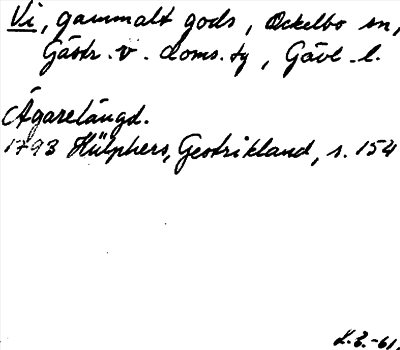 Vi, gammalt gods, Ockelbo sn,
Gästr. v. doms. tg, Gävl. l.
Ägarelängd.
1793 Hülphers, Gestrikland, s. 154